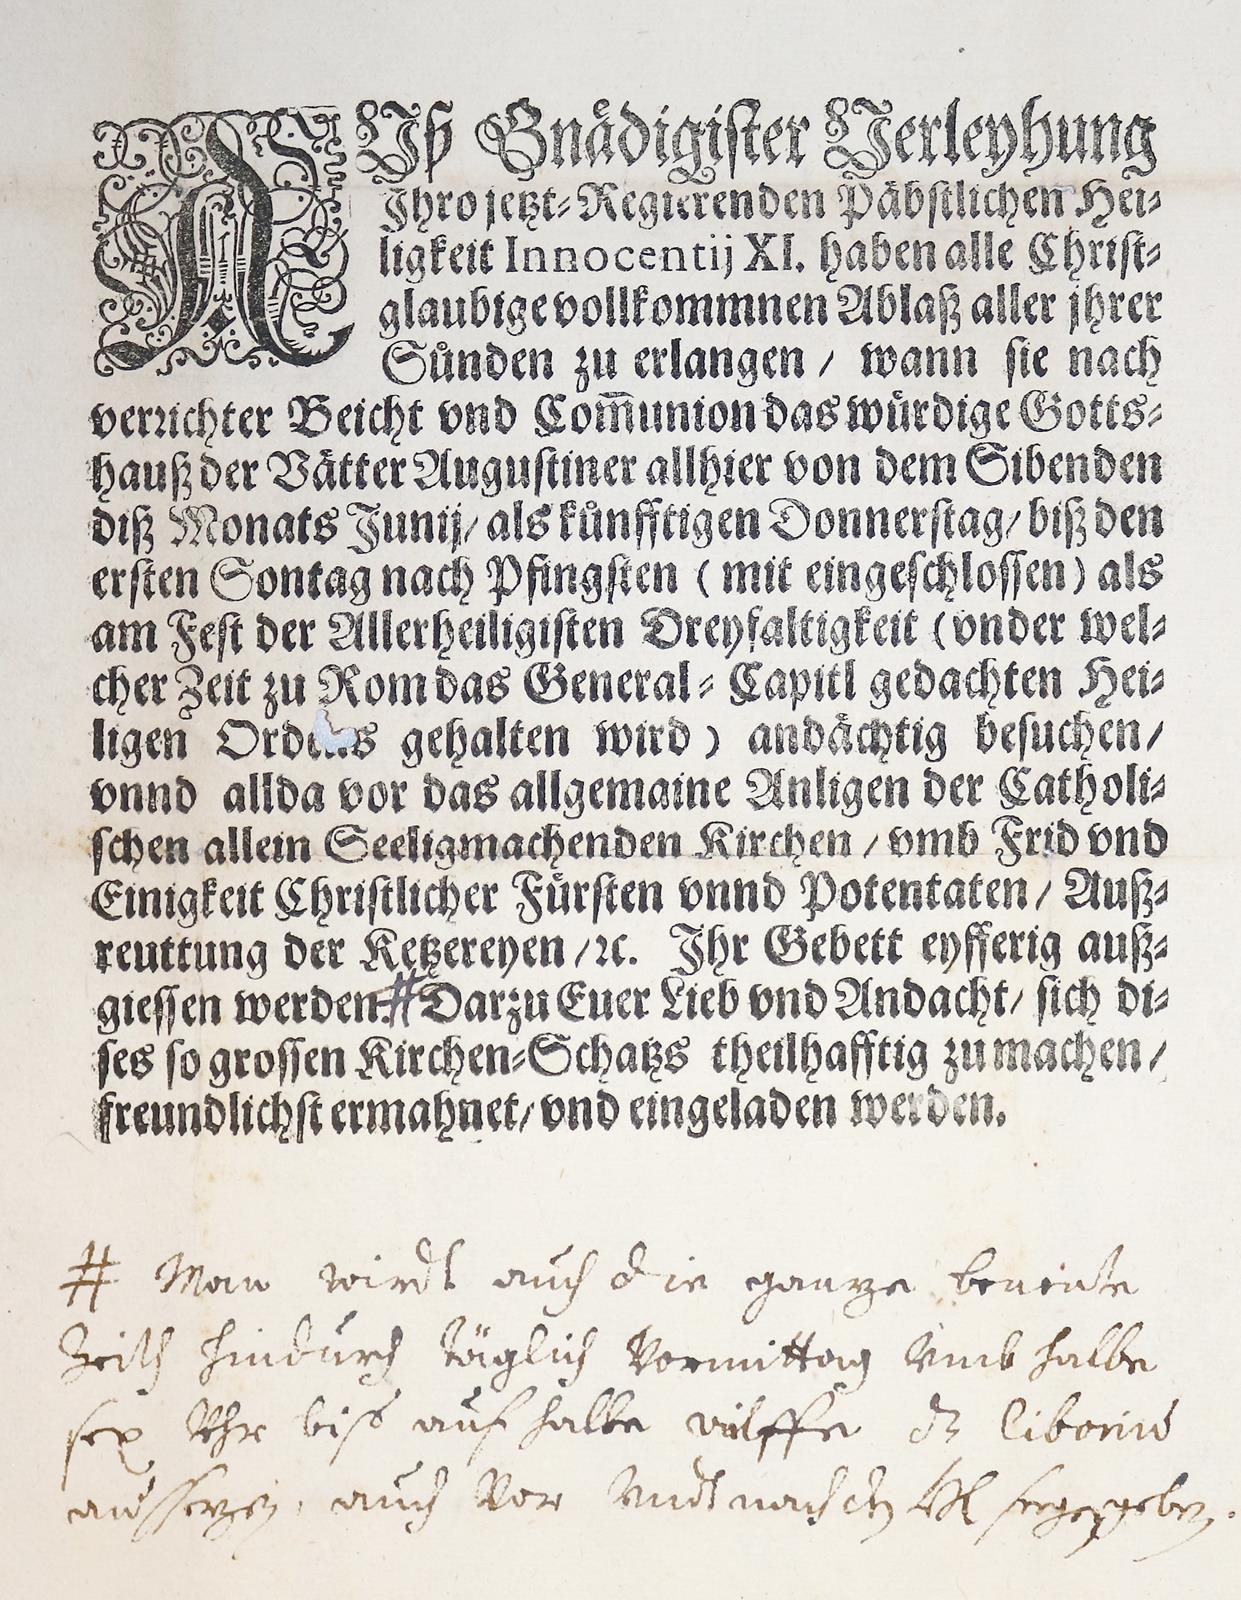 AUß Gnådigister Verleyhung
Ihro jetzt-Regierenden Päbstlichen Hei-
ligkeit Innocentij XI. haben alle Christ-
glaubige vollkommnen Ablaß aller jhrer
Sůnden zu erlangen / wann sie nach
verrichter Beicht vnd Com̃union das wůrdige Gotts-
hauß der Våtter Augustiner allhier von dem Sibenden
diß Monats Junij / als kůnfftigen Donnerstag / biß den
ersten Sontag nach Pfingsten ( mit eingeschlossen ) als
am Fest der Allerheiligisten Dreyfaltigkeit ( vnder wel-
cher Zeit zu Rom das General-Capitl gedachten Hei-
ligen Ordens gehalten wird ) andåchtig besuchen /
vnnd allda vor das allgemaine Anligen der Catholi-
schen allein Seeligmachenden Kirchen / vmb Frid vnd
Einigkeit Christlicher Fůrsten vnnd Potentaten / Auß-
reuttung der Ketzereyen / ꝛc. Ihr Gebett eyfferig auß-
giessen werden # Darzu Euer Lieb vnd Andacht / sich di-
ses so grossen Kirchen-Schatzs theilhafftig zu machen /
freundlichst ermahnet / vnd eingeladen werden.
# Man wirdt auch die ganze benente
Zeith hindurch täglich Vormittag Vmb halbe
sex Vhr biß auf halbe dz Ciborium
aussezen, auch Vor Vndt nach den